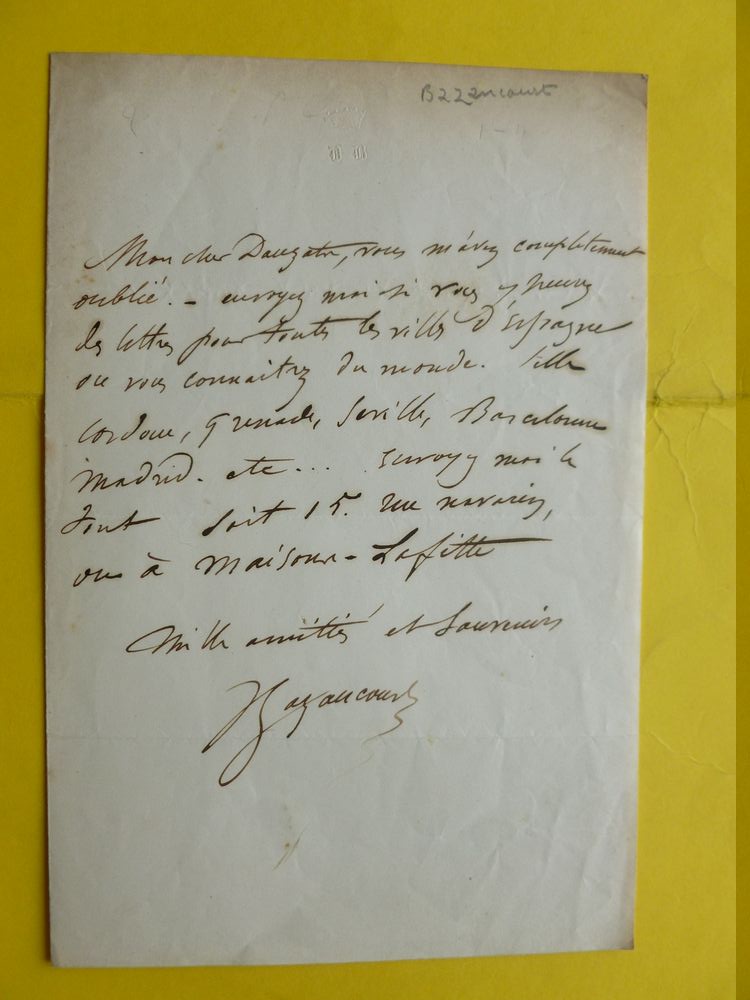 Bazancourt
Mon cher Dauzats, vous m'avez complètement
oublié. - envoyez moi si vous y pensez
des lettres pour toutes les villes d'Espagne
où vous connaitrez du monde. telle
Cordoue, Grenade, Seville, Barcelonne
Madrid. etc... Envoyez moi le
tout soit 15. rue navarin,
ou à Maisons-Lafitte
Mille amitiés et Souvenirs
Bazancourt